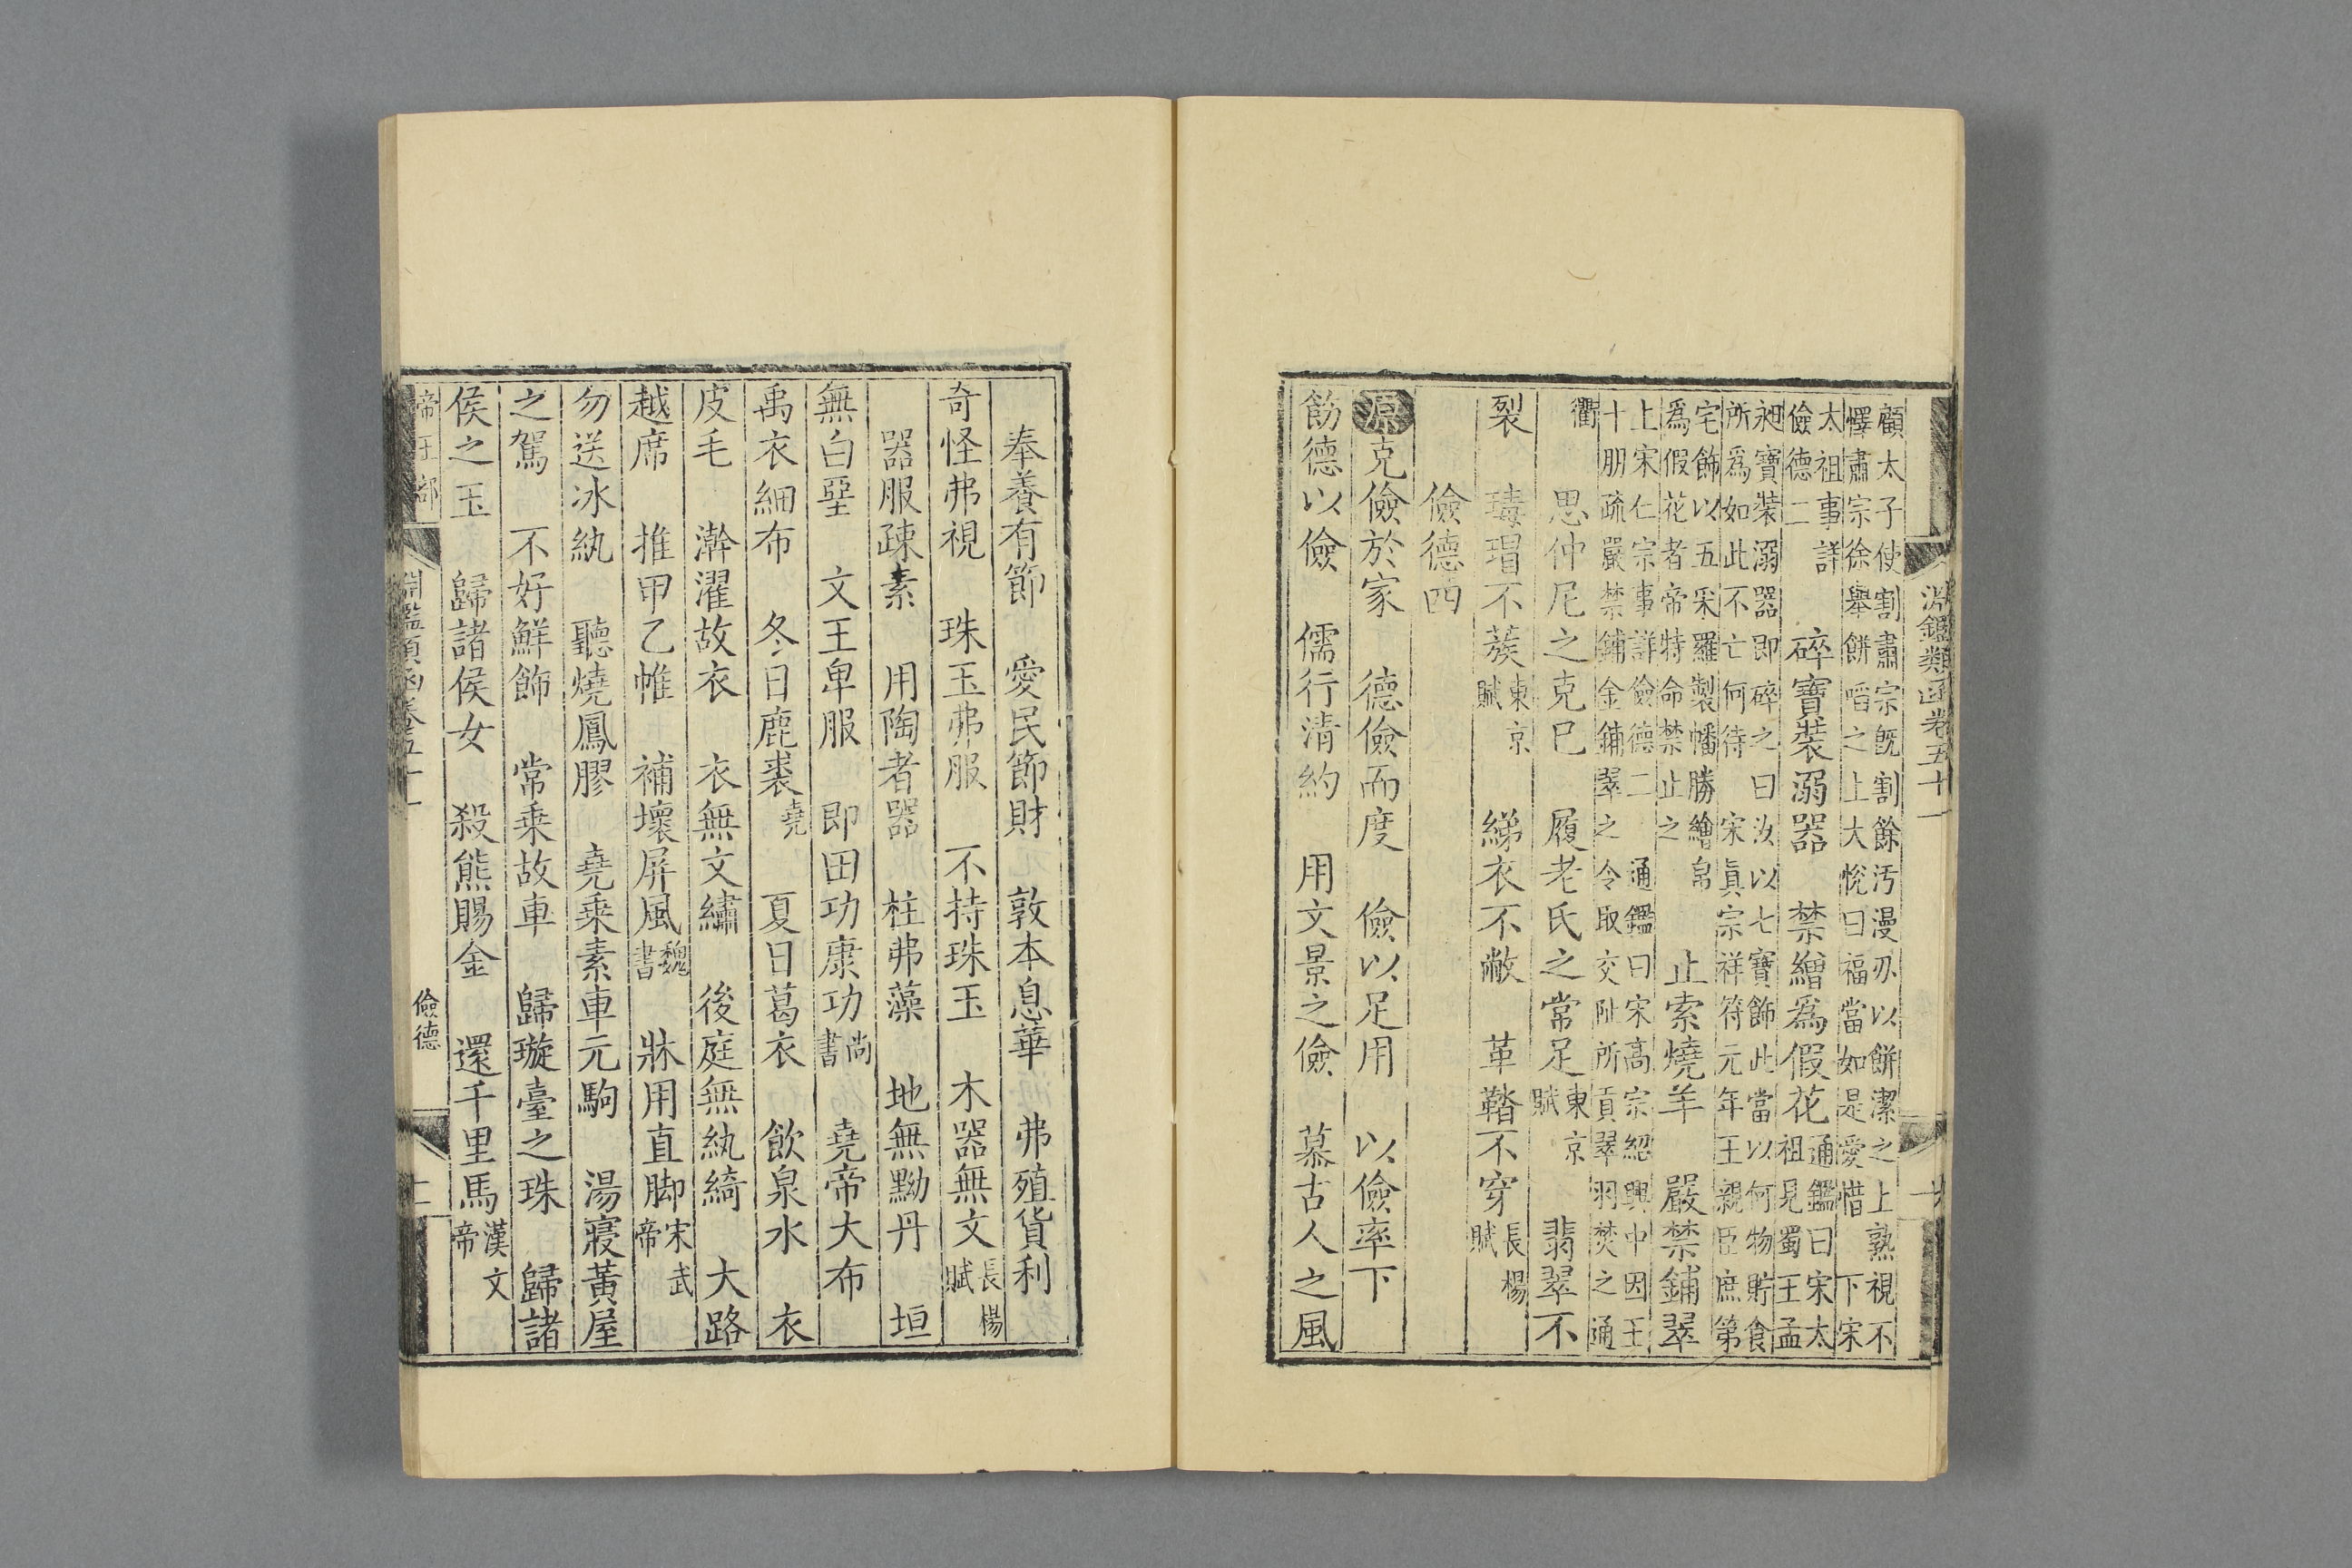 淵鑑類函卷五十一
顧太子使割肅宗旣割餘汚漫刃以餅潔之上熟視不
懌肅宗徐舉餅啗之上大悅曰福當如是愛惜 下宋
太祖事詳
儉德二
碎寶裝溺器 禁繒爲假花
通鑑曰宋太
祖見蜀王孟
昶寶裝溺器即碎之曰汝以七寶飾此當以何物貯食
所爲如此不亡何待 宋眞宗祥符元年王親臣庶第
宅飾以五采羅製幡勝繒帛
爲假花者帝特命禁止之
止索燒羊 嚴禁鋪翠
上宋仁宗事詳儉德二 通鑑曰宋高宗紹興中因王
十朋疏嚴禁鋪金鋪翠之令取交阯所貢翠羽焚之通
衢
思仲尼之克已 履老氏之常足
東京
賦
翡翠不
裂 瑇瑁不蔟
東京
賦
綈衣不敝 革鞜不穿
長楊
賦
儉德四
原克儉於家 德儉而度 儉以足用 以儉率下
飭德以儉 儒行清約 用文景之儉 慕古人之風
奉養有節 愛民節財 敦本息華 弗殖貨利
奇怪弗視 珠玉弗服 不持珠玉 木器無文
長楊
賦
器服疎素 用陶者器 柱弗藻 地無黝丹 垣
無白堊 文王卑服 即田功康功
尚
書
堯帝大布
禹衣細布 冬日鹿裘
堯
夏日葛衣 飲泉水 衣
皮毛 澣濯故衣 衣無文繡 後庭無紈綺 大路
越席 推甲乙帷 補壞屏風
魏
書
牀用直脚
宋武
帝
勿送冰紈 聽燒鳳膠 堯乘素車元駒 湯寢黃屋
之駕 不好鮮飾 常乘故車 歸璇臺之珠 歸諸
侯之玉 歸諸侯女 殺熊賜金 還千里馬
漢文
帝
帝王部
淵鑑類函卷五十一
儉德